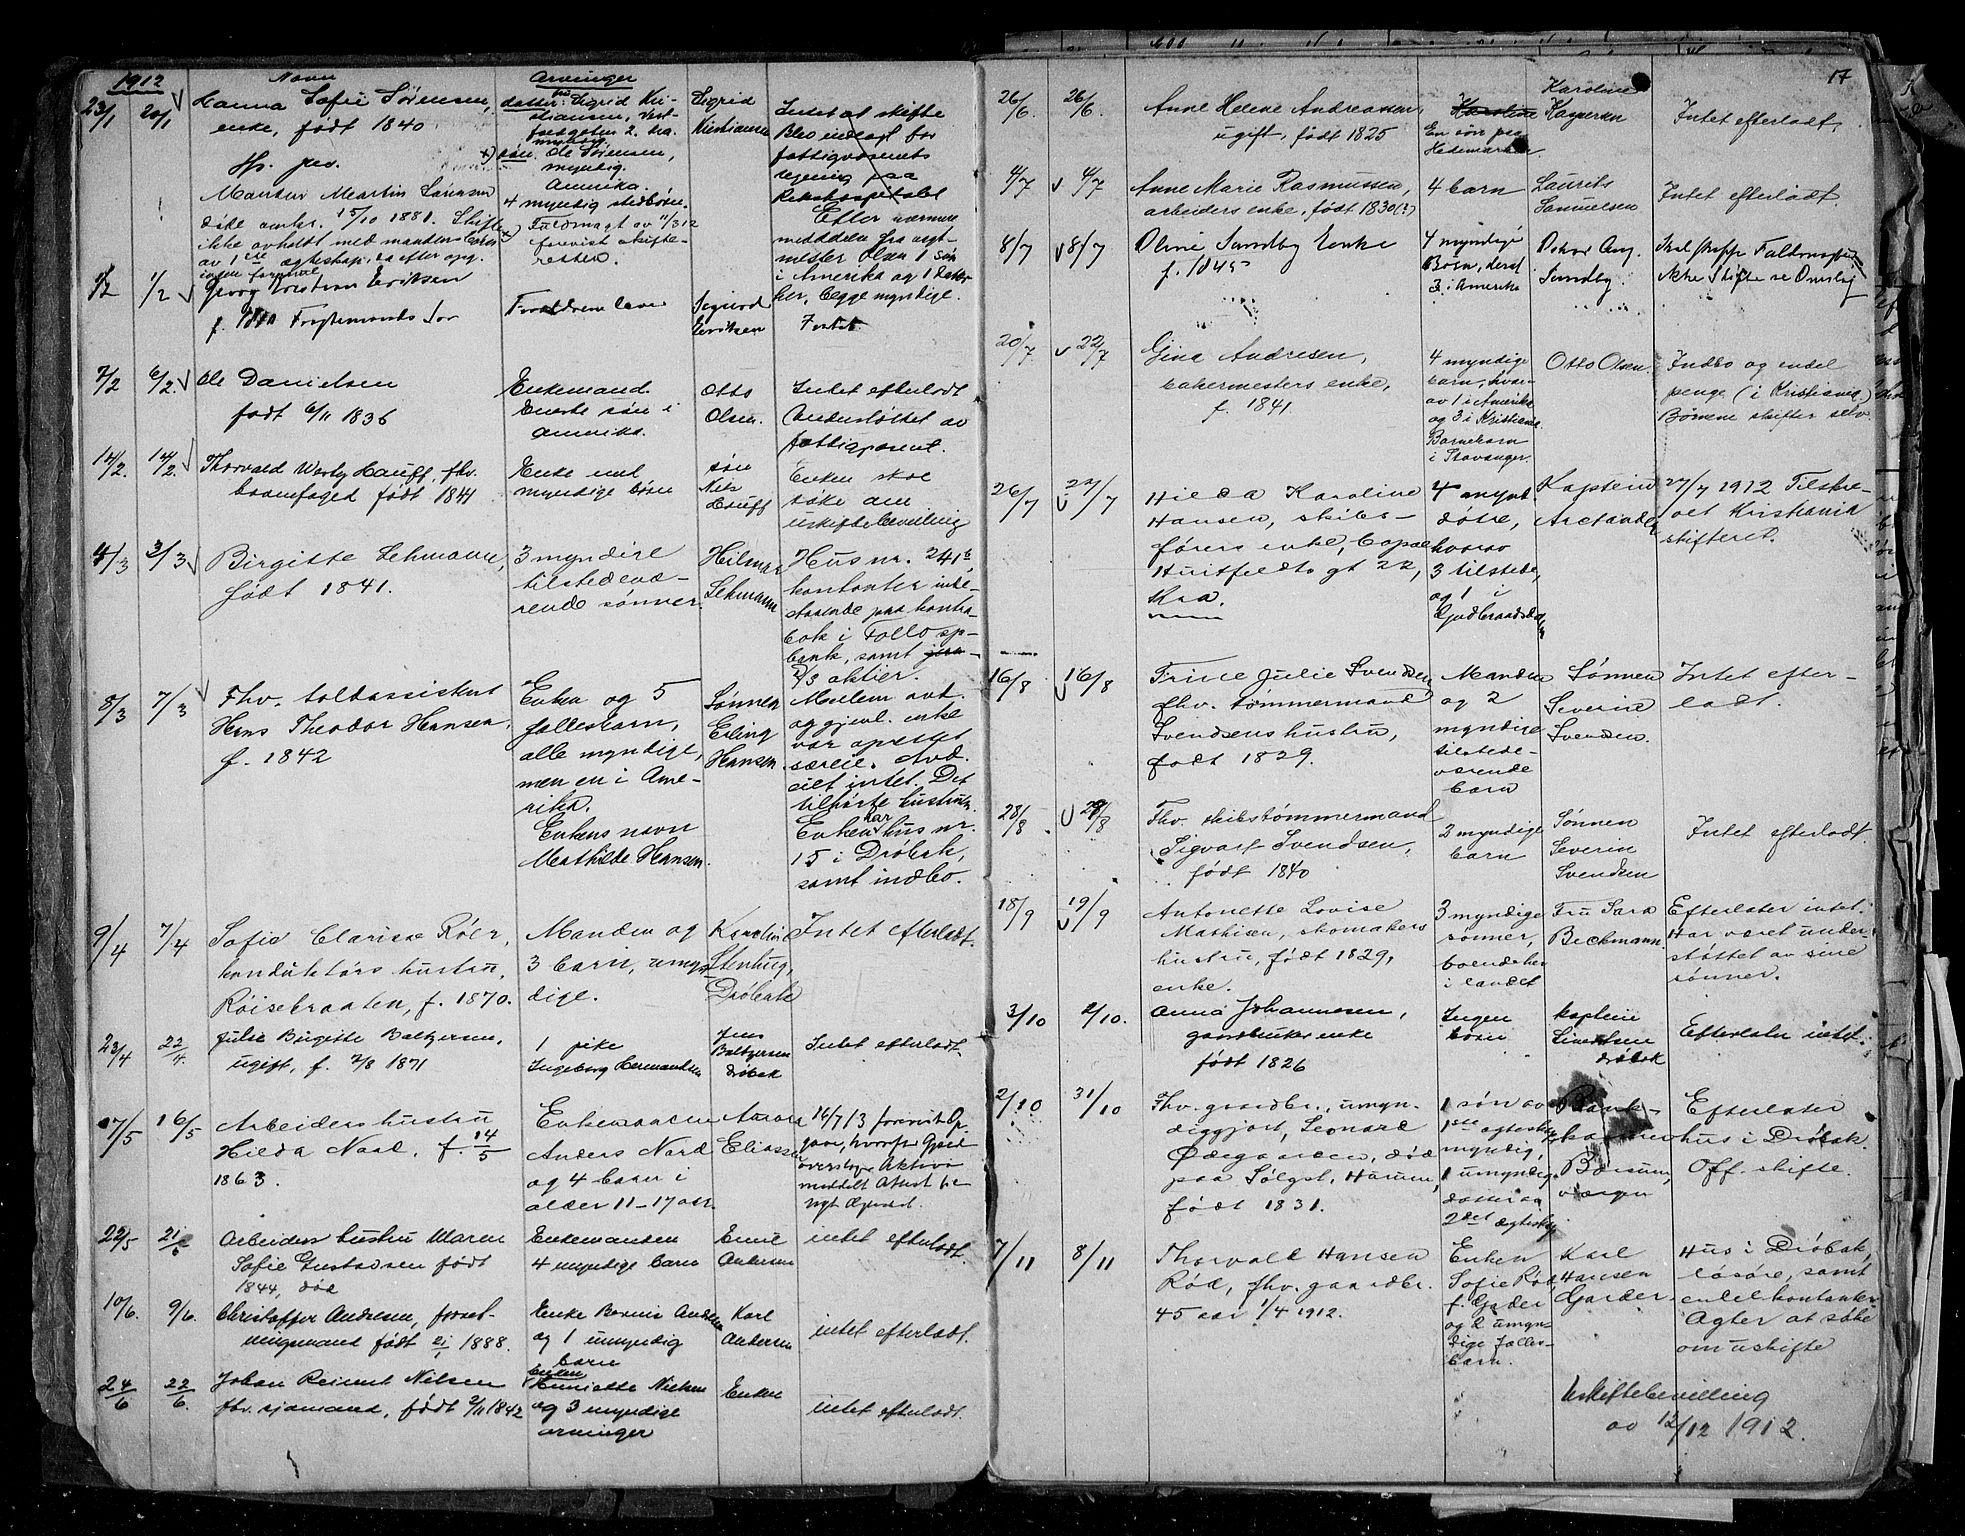 1912
Navn
Arvinger
23/1 20/1 Hanna Sofie Sørensen,
enke, født 1840.
datter: fru Sigrid Kri-
stiansen,
gaten 2, kra.
myndig
søn. Ole Sørensen,
myndig.
Amerika.
4 myndig stedbørn.
Fuldmagt av 11/3 12
forevist skifte-
retten.
Sigrid
Kristiansen
Intet at skifte
Blev indlagt for
fattigvæsenets
regning paa
Rikshospitalet
Efter nærmere
meddelelse fra
mester Olsen 1 søn
i Amerika og 1 datter
her, begge myndige.
Martin Sørensen
døde 15/10 1881. Skifte
ikke avholdt med mandens børn
av 1ste ægteskap, da efter
ingen formue
1/2 1/2 Georg Kristian Eriksen
f.
Forældrene lever
Sigurd
Eriksen
Intet
7/2 6/2 Ole Danielsen
født 6/11 1836
Enkemand.
Eneste søn i
Amerika.
Otto
Olsen.
Intet efterladt
Understøttet av
fattigvæsenet.
14/2. 14/2. Thorvald Hauff, fhv.
havnefoged født 1841
Enke med
myndige børn
søn
Nils
Hauff
Enken skal
søke om
uskiftebevilling
4/3 3/3 Birgitte Lehmann,
født 1841.
3 myndige
tilstedevæ-
rende sønner.
Hilmar
Lehmann
Hus nr. 241b,
kontanter inde-
staaende paa kontra-
bok i Follo sp-
bank, samt
2/3 aktier.
8/3 7/3 Fhv. toldassistent
Hans Theodor Hansen,
f. 1842
Enken og 5
fællesbarn,
alle myndige,
men en i Ame-
rika.
Enkens navn
Mathilde Hansen.
Sønnen
Erling
Hansen.
Mellem avd.
og gjenl. enke
var oprettet
særeie. Avd.
eiet intet. Det
tilhørte hustruen.
Enken har hus nr.
15 i Drøbak,
samt indbo.
9/4 7/4 Sofie Clarisse Röer,
konduktørs hustru,
Røisebraaten, f. 1870.
Manden og
3 barn, umyn-
dige.
Karoline
Stenhug,
Drøbak
Intet efterladt.
23/4 22/4. Julie Birgitte Baltzersen,
ugift, f. 2/8 1871
1 pike
Ingeborg Hermansen
Jens
Baltzersen
Drøbak
Intet efterladt.
17/5 16/5 Arbeiders hustru
Hilda Nord, f. 14/5
1863.
Enkemanden
Anders Nord
og 4 barn i
alder 11-17 aar.
Aaron
Eliassen
16/7 13 forevist Op-
gave, hvorefter Gjæld
overstiger Aktiva
meddelt Attest
22/5 21/5 Arbeiders hustru Maren
Sofie Gustavsen født
1844, død
Enkemanden
4 myndige barn
Emil
Andersen
intet efterladt.
10/6. 9/6. Christoffer Andresen, forret-
ningsmand født 21/1 1888.
Enke Andresen
og 1 umyndig
barn
Karl
Andersen
intet efterladt.
24/6 22/6. Johan Reinert Nilsen
fhv. sjømand, født 2/11 1842
Enken
Henriette Nielsen
og 3 myndige
arvinger
Enken
intet efterladt.
17
26/6. 26/6. Anne Helene Andreassen,
ugift, født 1825
Karoline
En søn paa
Hedemarken
Karoline
Kaspersen
Intet efterladt.
4/7 4/7 Anne Marie Rasmussen,
arbeiders enke, født 1830(?)
4 barn
Laurits
Samuelsen
Intet efterladt.
8/7 8/7 Oline Sundby Enke
f. 1845
4 myndige
Børn, deraf
3 i Amerika
Oskar Aug.
Sundby.
Skal skaffe Fuldmagter
ikke Skifte se Omslag
20/7 22/7 Gina Andresen,
bakermesters enke,
f. 1841.
4 myndige
barn, hvor-
av 1 i Amerika
og 3 i Kristiania.
Barnebarn
i Stavanger.
Otto Olsen.
Indbo og endel
penge (i Kristiania.)
Børnene skifter selv.
26/7 27/7 Hilda Karoline
Hansen, skibs-
førers enke,
Huitfeldts gt 22,
Kra.
4 mynd.
døtre,
hvorav
3 tilstede,
og 1 i
Gudbrandsdalen
Kaptein
27/7 1912 Tilskre-
vet Kristiania
skifteret.
16/8 16/8 Trine Julie Svendsen,
fhv. tømmermand
Svendsens hustru,
født 1829.
Manden
og 2
myndige
tilstede-
værende
barn
Sønnen
Severin
Svendsen.
Intet efter-
ladt.
28/8 29/8 Fhv. skibstømmermand
Sigvart Svendsen,
født 1840
2 myndige
barn
Sønnen
Severin
Svendsen
Intet efterladt.
18/9 19/9 Antonette Lovise
Mathisen, skomakers
hustru, født 1829,
enke.
3 myndige
sønner,
boende her
i landet
Fru Sara
Beckmann.
Efterlater intet.
Har været under-
støttet av sine
sønner.
3/10 2/10. Anna Johannesen,
gaardbruker enke
født 1826
Ingen
børn
kaptein
Sivertsen
Drøbak
Efterlater intet.
2/10 31/10 Fhv. gaardbr., umyn-
diggjort, Leonard
Ødegaarden, død
paa Solgst, Hurum,
født 1831.
1 søn av
1ste ægteskap
myndig,
1 umyndig
datter av
2det ægteskap
Bank-
kasserer
Bærum,
værge
Efterlater
hus i Drøbak.
Off. skifte.
7/11 8/11 Thorvald Hansen
Rød, fhv. gaardbr.
45 aar 1/4 1912.
Enken
Sofie Rød,
f. Garder
og 2 umyn-
dige fælles-
barn.
Karl
Hansen
Garder.
Hus i Drøbak,
løsøre, samt
endel kontanter.
Agter at søke
om uskifte
Uskiftebevilling
av 12/12 1912.